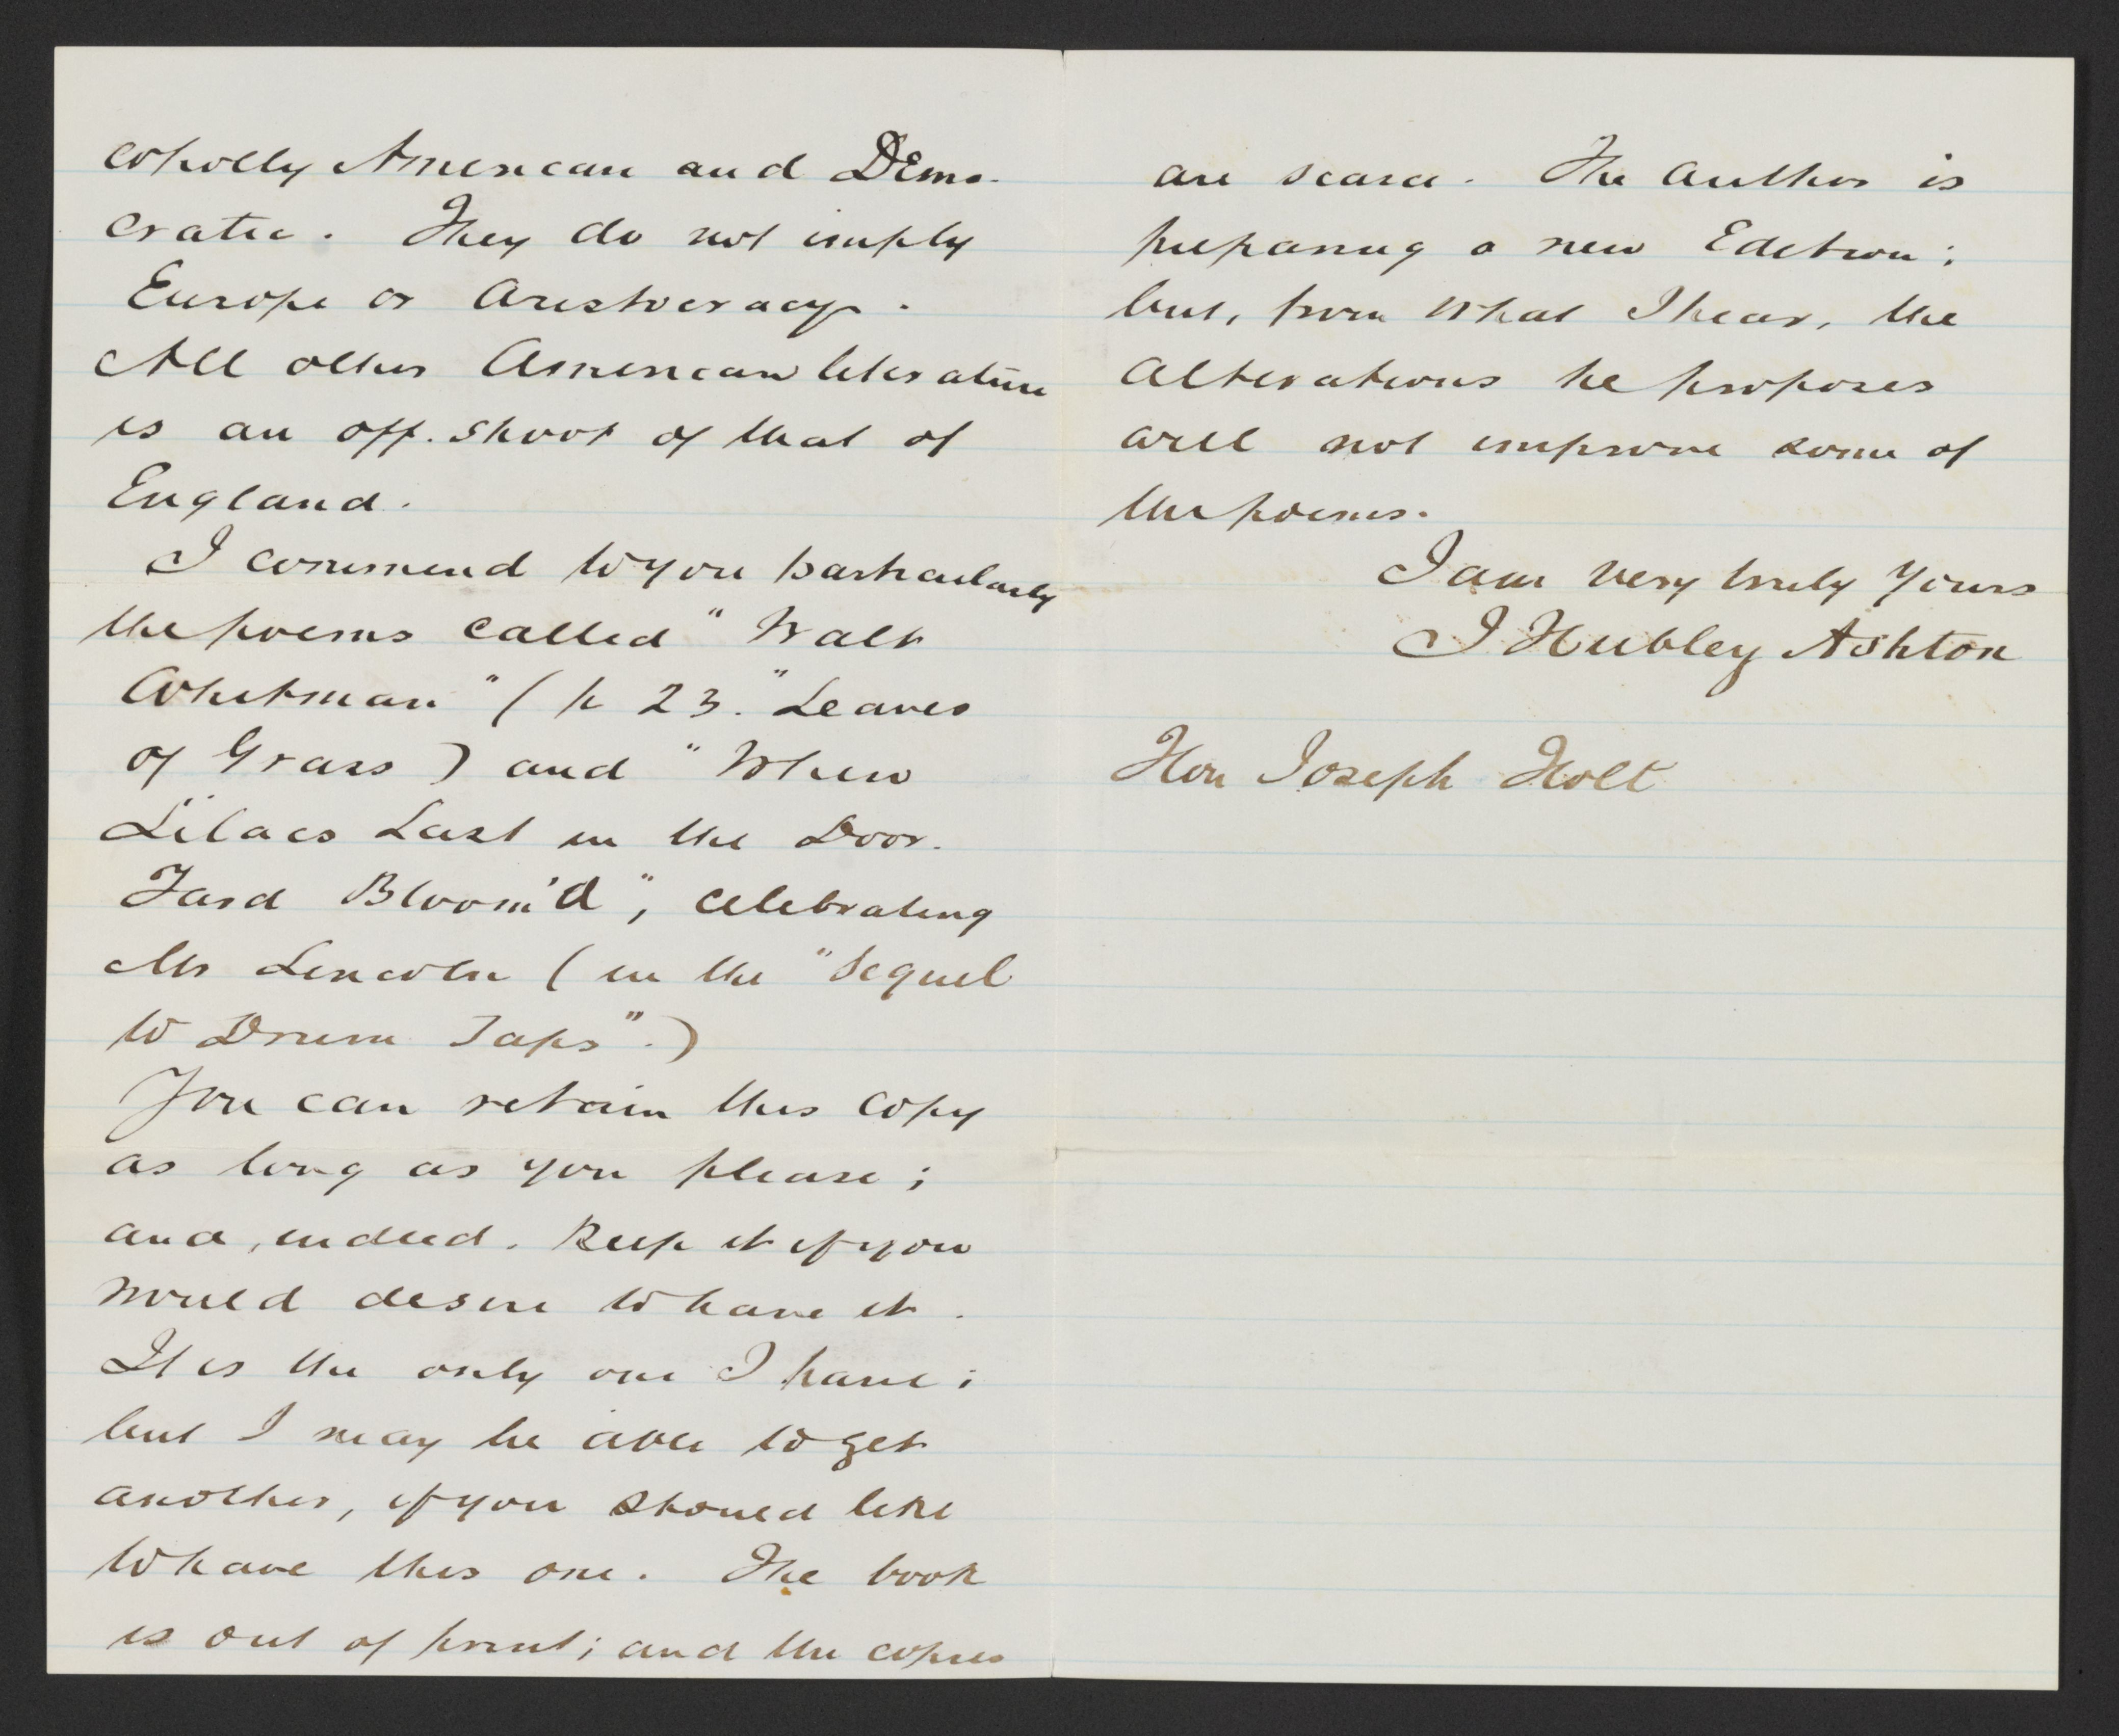 wholly American and Demo-
cratic. They do not imply
Europe or Aristocracy.
All other American literature
is an off-shoot of that of
England.
I commend to you particularly
the poems called "Walt
Whitman" (p 23. "Leaves
of Grass) and "When
Lilacs Last in the Door-
Yard Bloom'd", celebrating
Mr Lincoln (in the "Sequel
to Drum Taps".)
You can retain this copy
as long as you please;
and, indeed, keep it if you
would desire to have it.
It is the only one I have;
but I may be able to get
another, if you should like
to have this one. The book
is out of print; and the copies
are scarce. The author is
preparing a new Edition;
but, from what I hear, the
alterations he proposes
will not improve some of
the poems.
I am very truly yours
J Hubley Ashton
Hon Joseph Holt